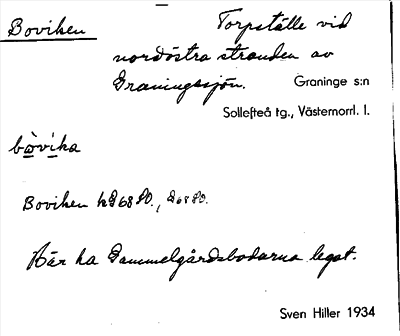 Boviken
Torpställe vid
nordöstra stranden av
Graningssjön. Graninge s:n
Sollefteå tg., Västernorrl. l.
bòvika
Boviken
Här ha Gammelgårdsbodarna legat.
Sven Hiller 1934